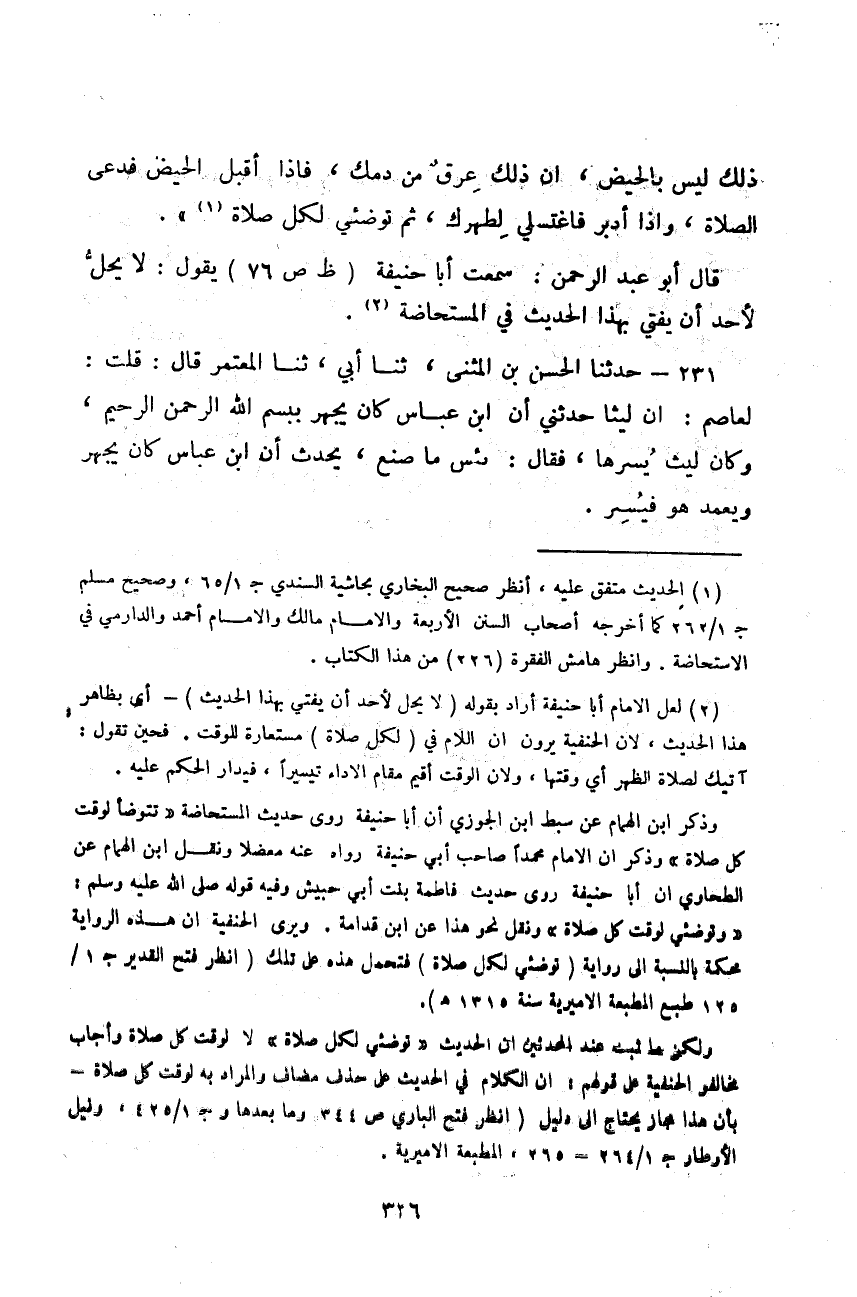 ذلك ليس بالحيض ، ان ذلك عِرقٌ من دمك ، فاذا أقبل الحيض فدعى
الصلاة ، واذا أدبر فاغتسلي لِطهرك ، ثم توضئي لكل صلاة (١) » .
قال أبو عبد الرحمن : سمعت أبا حنيفة ( ظ ص ٧٦ ) يقول : لا يحلُّ
لأحد أن يفتي بهذا الحديث في المستحاضة (٢) .
٢٣١ – حدثنا الحسن بن المثنى ، ثنـا أبي ، ثنـا المعتمر قال : قلت :
لعاصم : ان ليثا حدثني أن ابن عبـاس كان يجهر ببسم الله الرحمن الرحيم ،
وكان ليث يُسرها ، فقال : بئس ما صنع ، يحدث أن ابن عباس كان يجهر
ويعمد هو فيُسِر .
(١) الحديث متفق عليه ، أنظر صحيح البخاري بحاشية السندي ج ٦٥/١ ، وصحيح مسلم
ج ٢٦٢/١ كما أخرجه أصحاب السنن الأربعة والامـام مالك والامـام أحمد والدارمي في
الاستحاضة . وانظر هامش الفقرة (٢٢٦) من هذا الكتاب .
(٢) لعل الامام أبا حنيفة أراد بقوله ( لا يحل لأحد أن يفتي بهذا الحديث ) – أي بظاهر
هذا الحديث ، لان الحنفية يرون ان اللام في ( لكل صلاة ) مستعارة للوقت . فحين تقول :
آتيك لصلاة الظهر أي وقتها ، ولان الوقت أقيم مقام الاداء تيسيراً ، فيدار الحكم عليه .
وذكر ابن الهمام عن سبط ابن الجوزي أن أبا حنيفة روى حديث المستحاضة « تتوضأ لوقت
كل صلاة » وذكر ان الامام محمداً صاحب أبي حنيفة رواه عنه معضلا ونقـل ابن الهمام عن
الطحاوي ان أبا حنيفة روى حديث فاطمة بنت أبي حبيش وفيه قوله صلى الله عليه وسلم :
« وتوضئي لوقت كل صلاة » ونقل نحو هذا عن ابن قدامة . ويرى الحنفية ان هـذه الرواية
محكمة بالنسبة الى رواية ( توضئي لكل صلاة ) فتحمل هذه على تلك ( انظر فتح القدير ج ١/
١٢٥ طبع المطبعة الاميرية سنة ١٣١٥ ه ).
ولكن ما ثبت عند المحدثين ان الحديث « توضئي لكل صلاة » لا لوقت كل صلاة وأجاب
مخالفو الحنفية على قولهم : ان الكلام في الحديث على حذف مضاف والمراد به لوقت كل صلاة –
بأن هذا مجاز يحتاج الى دليل ( انظر فتح الباري ص ٣٤٤ وما بعدها و ج ٤٢٥/١ ، ونيل
الأرطار ج ٢٦٤/١ – ٢٦٥ ، المطبعة الاميرية .
٣٢٦